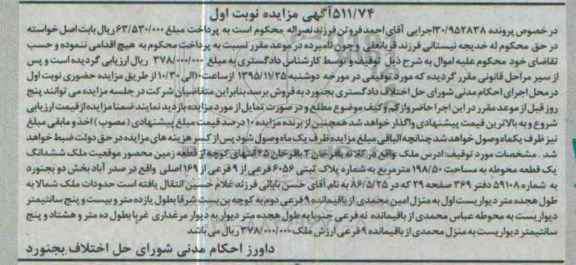 ۵۱۱/۷۴آگهی مزایده نوبت اول
در خصوص پرونده ۳۰/۹۵۲۸۳۸اجرایی آقای احمد فروتن فرزند نصراله محکوم است به پرداخت مبلغ ۶۳/۵۳۰/۰۰۰ریال بابت اصل خواسته
در حق محکوم له خدیجه نیستانی فرزند قربانعلی و چون نامبرده در موعد مقرر نسبت به پرداخت محکوم به هیچ اقدامی ننموده و حسب
تقاضای خود محکوم علیه اموال به شرح ذیل توقیف و توسط کارشناس دادگستری به مبلغ ۳۷۸/۰۰۰/۰۰۰ ریال ارزیابی گردیده است و پس
از سیر مراحل قانونی مقرر گردیده که مورد توقیفی در مورخه دوشنبه ۱۳۹۵/۱۱/۲۵ از ساعت ۱۰الی ۱۰/۳۰ از طریق مزایده حضوری نوبت اول
در محل اجرای احکام مدنی شورای حل اختلاف دادگستری بجنورد به فروش برسد بنابراین متقاضیان شرکت در جلسه مزایده می توانند پنج
روز قبل از موعد مقرر در این اجرا حاضر واز کم و کیف موضوع مطلع و در صورت تمایل از مورد مزایده بازدید نمایند ضمنا مزایده از قیمت ارزیابی
شروع و به بالاترین قیمت پیشنهادی واگذار خواهد شد همچنین از برنده مزایده ۱۰ درصد قیمت پیشنهادی ( مصوب ) اخذ و مابقی مبلغ
نیز ظرف یکماه وصول خواهد شد چنانچه الباقی مبلغ مزایده ظرف یک ماه وصول شود پس از کسر هزینه های مزایده در حق دولت ضبط خواهد
شد . مشخصات مورد توقیف: ادرس ملک :واقع در کلاته باقرخان ۲ باقرخان ۲۵ انتهای کوچه از قطعه زمین محصور موقعیت ملک ششدانگ
یک قطعه محوطه به مساحت ۱۹۸/۵۰ مترمربع به شماره پلاک ثبتی ۶۰۵۶ فرعی از ۹ فرعی از ۱۶۹ اصلی واقع در صدر آباد بخش دو بجنورد
به شماره ۵۹۱۰۸ دفتر ۳۶۹ صفحه ۲۹ که در ۸۶/۵/۲۵ به نام آقای حسن بابائی فرزند غلام حسین انتقال یافته است حدودات ملک شمالا به
طول هجده متر دیواریست اول به منزل امین محمدی از باقیمانده ۹ فرعی دوم به کوچه بن بست شرقا بطول یازده متر و بیست و پنج سانتیمتر
دیواریست به محوطه عباس محمدی از باقیمانده نه فرعی جنوبا به طول هجده متر دیوار به دیوار مرغداری غربا بطول ده متر و هشتاد و پنج
سانتیمتر دیواریست به منزل محمدی از باقیمانده ۹ فرعی ارزش ملک۳۷۸/۰۰۰/۰۰۰ ریال می باشد
داورز احکام مدنی شورای حل اختلاف بجنورد